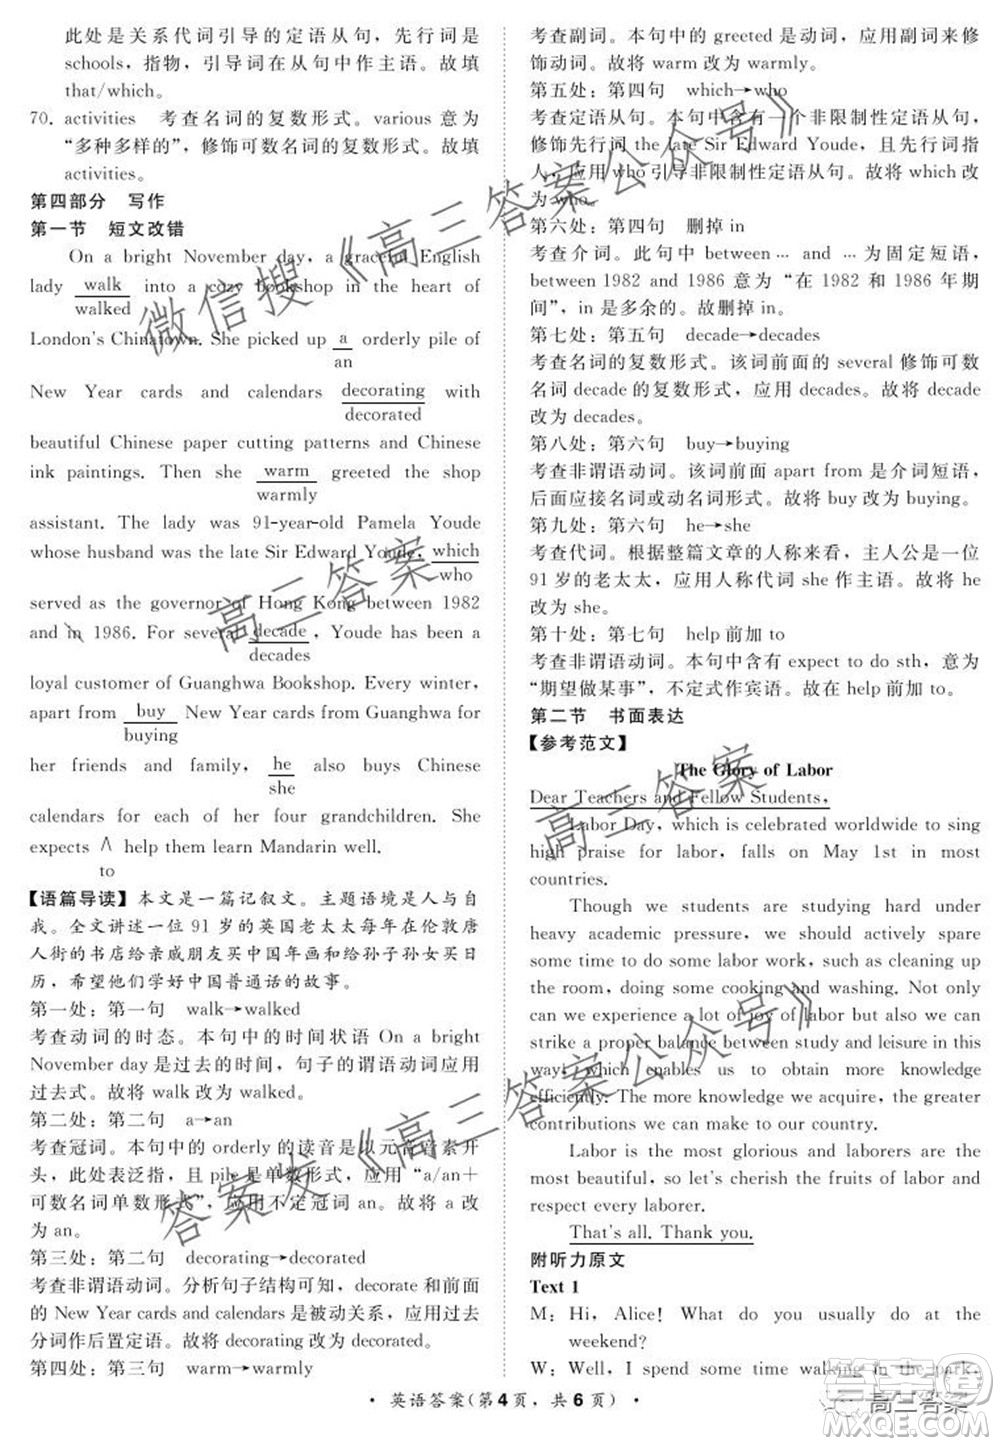 此处是关系代词引导的定语从句，先行词是
schools，指物，引导词在从句中作主语。故填
that/which。
70. activities 考查名词的复数形式。various 意为
“多种多样的”，修饰可数名词的复数形式。故填
activities。
第四部分 写作
第一节 短文改错
On a bright November day, a graceful English
lady walk into a cozy bookshop in the heart of
walked
London's Chinatown. She picked up a orderly pile of
an
New Year cards and calendars decorating with
decorated
beautiful Chinese paper cutting patterns and Chinese
ink paintings. Then she warm greeted the shop
warmly
assistant. The lady was 91-year-old Pamela Youde
whose husband was the late Sir Edward Youde, which
who
served as the governor of Hong Kong between 1982
and in 1986. For several decade, Youde has been a
decades
loyal customer of Guanghwa Bookshop. Every winter,
apart from buy New Year cards from Guanghwa for
buying
her friends and family, he also buys Chinese
she
calendars for each of her four grandchildren. She
expects ∧ help them learn Mandarin well.
to
【语篇导读】本文是一篇记叙文。主题语境是人与自
我。全文讲述一位 91 岁的英国老太太每年在伦敦唐
人街的书店给亲戚朋友买中国年画和给孙子孙女买日
历，希望他们学好中国普通话的故事。
第一处：第一句 walk→walked
考查动词的时态。本句中的时间状语 On a bright
November day 是过去的时间，句子的谓语动词应用
过去式。故将 walk 改为 walked。
第二处：第二句 a→an
考查冠词。本句中的 orderly 的读音是以元音音素开
头，此处表泛指，且 pile 是单数形式，应用“a/an＋
可数名词单数形式”，应用不定冠词 an。故将 a 改
为 an。
第三处：第二句 decorating→decorated
考查非谓语动词。分析句子结构可知，decorate 和前面
的 New Year cards and calendars 是被动关系，应用过去
分词作后置定语。故将 decorating 改为 decorated。
第四处：第三句 warm→warmly
考查副词。本句中的 greeted 是动词，应用副词来修
饰动词。故将 warm 改为 warmly。
第五处：第四句 which→who
考查定语从句。本句中含有一个非限制性定语从句，
修饰先行词 the late Sir Edward Youde，且先行词指
人，应用 who 引导非限制性定语从句。故将 which 改
为 who。
第六处：第四句 删掉 in
考查介词。此句中 between … and … 为固定短语，
between 1982 and 1986 意为“在 1982 和 1986 年期
间”，in 是多余的。故删掉 in。
第七处：第五句 decade→decades
考查名词的复数形式。该词前面的 several 修饰可数
名词 decade 的复数形式，应用 decades。故将 decade
改为 decades。
第八处：第六句 buy→buying
考查非谓语动词。该词前面 apart from 是介词短语，
后面应接名词或动名词形式。故将 buy 改为 buying。
第九处：第六句 he→she
考查代词。根据整篇文章的人称来看，主人公是一位
91 岁的老太太，应用人称代词 she 作主语。故将 he
改为 she。
第十处：第七句 help 前加 to
考查非谓语动词。本句中含有 expect to do sth，意为
“期望做某事”，不定式作宾语。故在 help 前加 to。
第二节 书面表达
【参考范文】
The Glory of Labor
Dear Teachers and Fellow Students,
Labor Day, which is celebrated worldwide to sing
high praise for labor, falls on May 1st in most
countries.
Though we students are studying hard under
heavy academic pressure, we should actively spare
some time to do some labor work, such as cleaning up
the room, doing some cooking and washing. Not only
can we experience a lot of joy of labor but also we can
strike a proper balance between study and leisure in this
way, which enables us to obtain more knowledge
efficiently. The more knowledge we acquire, the greater
contributions we can make to our country.
Labor is the most glorious and laborers are the
most beautiful, so let's cherish the fruits of labor and
respect every laborer.
That's all. Thank you.
附听力原文
Text 1
M: Hi, Alice! What do you usually do at the
weekend?
W: Well, I spend some time walking in the park,
• 英语答案(第 4 页，共 6 页) •
微信搜《高三答案公众号》
高三答案
高三答案
答案发《高三答案公众号》
高三答案
MXQE.COM
答案圈